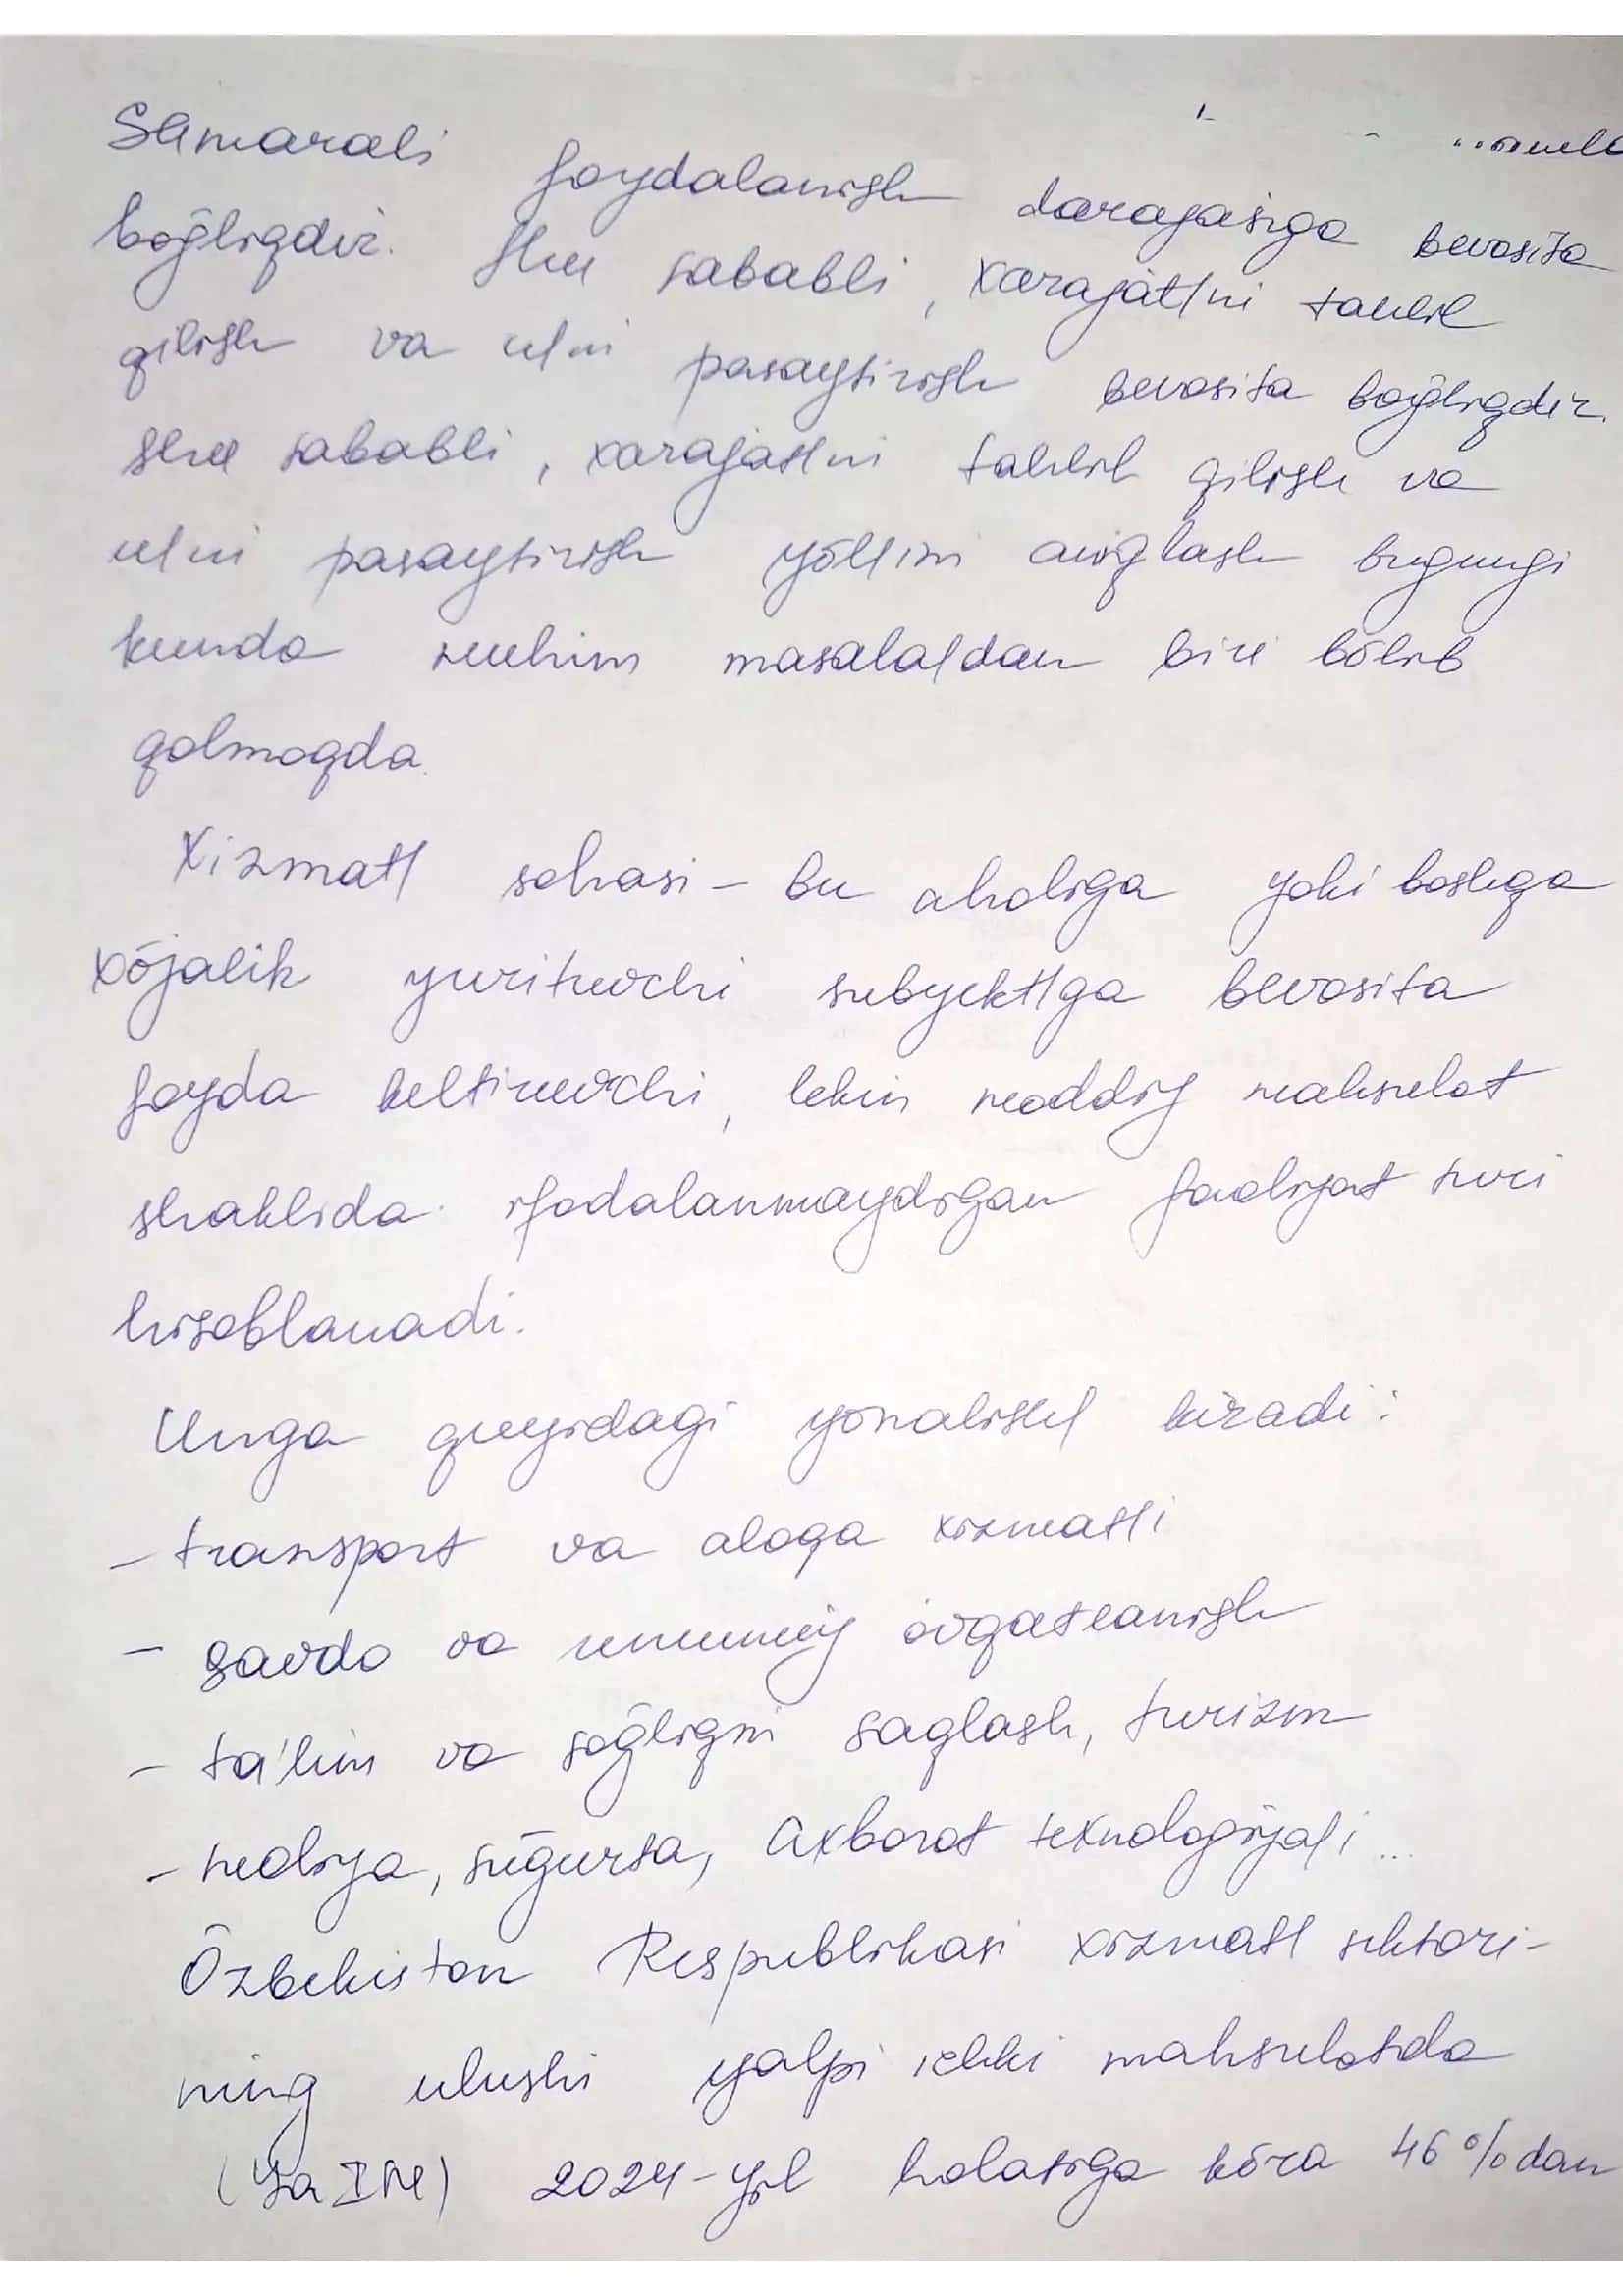 Samarali foydalanish darajasiga bevosita
bog̃liqdir. Shu sababli, xarajatlni tahlil
qilish va ulni pasaytirish bevosita bog̃liqdir.
Shu sababli, xarajatlni tahlil qilish va
ulni pasaytirish yõllini aniqlash bugungi
kunda muhim masalaldan biri bõlib
qolmoqda.
Xizmatl sohasi - bu aholiga yoki boshqa
xõjalik yurituvchi subyektlga bevosita
foyda keltiruvchi, lekin moddiy mahsulot
shaklida ifodalanmaydigan faoliyat turi
hisoblanadi.
Unga quyidagi yõnalishl kiradi:
- transport va aloqa xizmatli
- savdo va umumiy õvqatlanish
- ta'lim va sog̃liqni saqlash, turizm
- mediya, sug̃urta, axborot texnologiyali ...
Õzbekiston Respublikasi xizmatl sektori-
ning ulushi yalpi ichki mahsulotda
(YaIM) 2024-yil holatiga kõra 46% dan